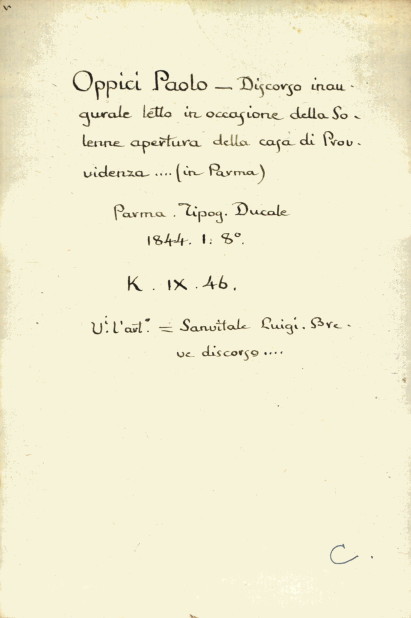 Oppici Paolo — Discorso inau-
gurale letto in occasione della So-
lenne apertura della casa di Prov-
videnza .... (in Parma)
Parma . Tipog. Ducale
1844. 1. 8º.
K . IX . 46.
V.i l'art.º = Sanvitale Luigi . Bre-
ve discorso ....
C .